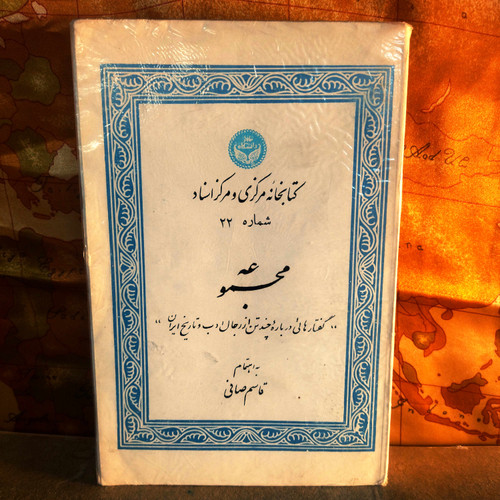 کتابخانه مرکزی و مرکز اسناد
شماره ۲۲
مجموعه
"گفتارهائی درباره چند تن از رجال ادب و تاریخ ایران"
به اهتمام
قاسم صافی